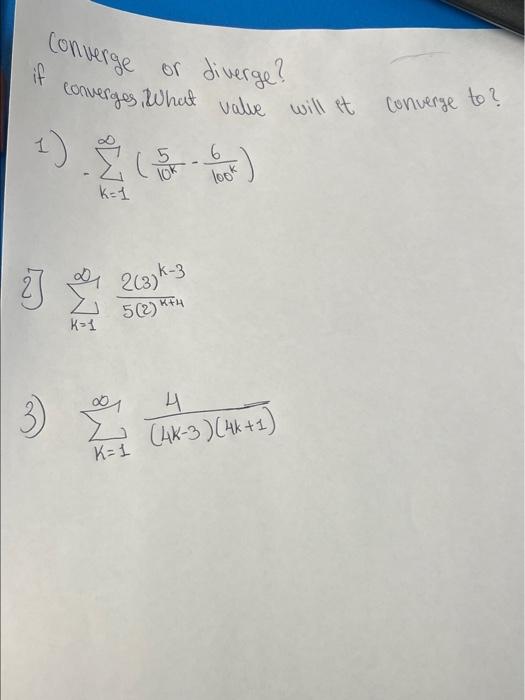 Converge or diverge?
if converges, What value will it converge to?
1) \sum_{k=1}^{\infty} ( \frac{5}{10^k} - \frac{6}{100^k} )
2] \sum_{k=1}^{\infty} \frac{2(3)^{k-3}}{5(2)^{k+4}}
3) \sum_{k=1}^{\infty} \frac{4}{(4k-3)(4k+1)}